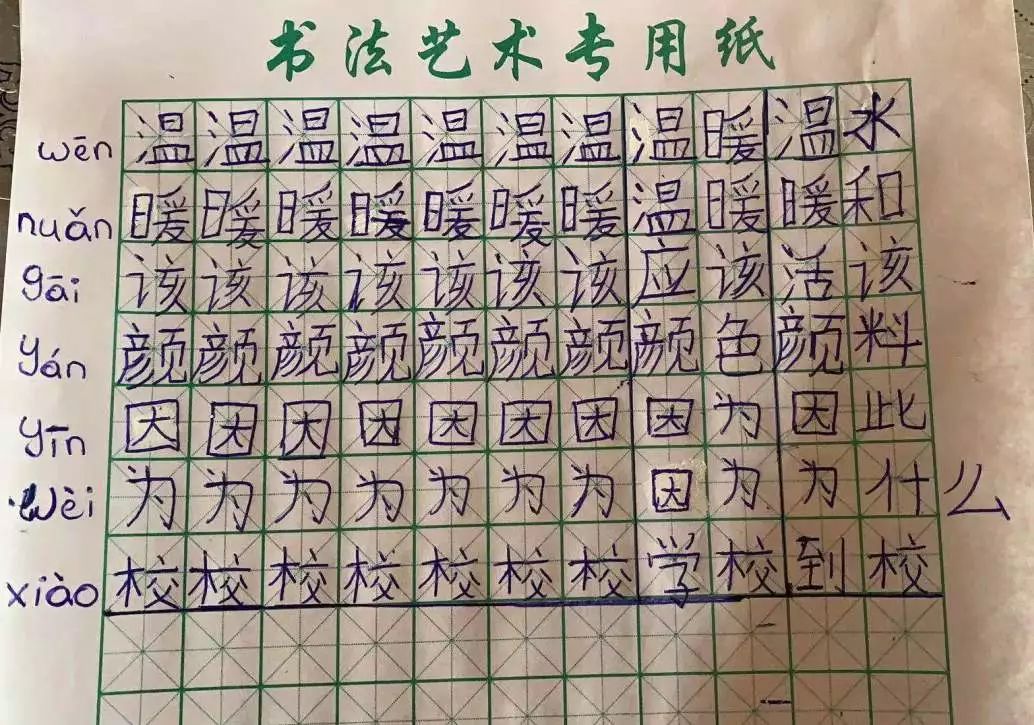 书法艺术专用纸
wēn 温温温温温温温温暖温水
nuǎn 暖暖暖暖暖暖暖温暖暖和
gāi 该该该该该该该应该活该
yán 颜颜颜颜颜颜颜颜色颜料
yīn 因因因因因因因因为因此
wèi 为为为为为为为因为为什么
xiào 校校校校校校校学校到校